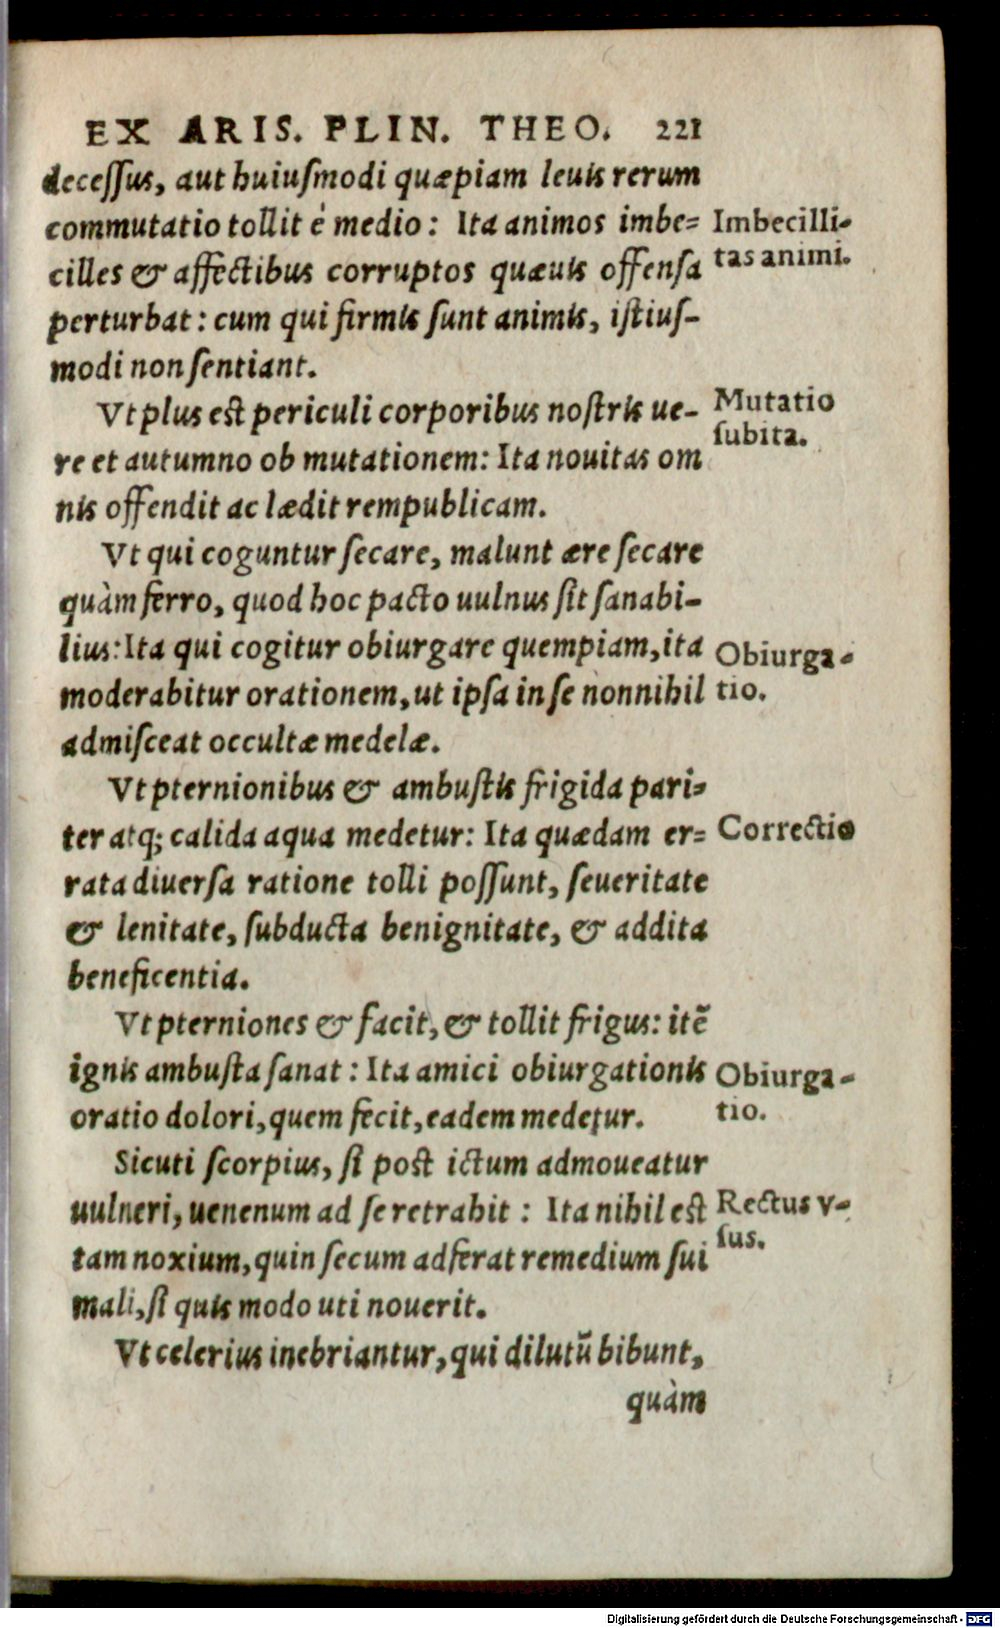 EX ARIS. PLIN. THEO. 221
decessus, aut huiusmodi quæpiam leuis rerum
commutatio tollit è medio: Ita animos imbe=
Imbecilli-
cilles & affectibus corruptos quæuis offensa
tas animi.
perturbat: cum qui firmis sunt animis, istius-
modi non sentiant.
Vt plus est periculi corporibus nostris ue-
Mutatio
re et autumno ob mutationem: Ita nouitas om
subita.
nis offendit ac lædit rempublicam.
Vt qui coguntur secare, malunt ære secare
quàm ferro, quod hoc pacto uulnus sit sanabi-
lius: Ita qui cogitur obiurgare quempiam, ita
Obiurga-
moderabitur orationem, ut ipsa in se nonnihil
tio.
admisceat occultæ medelæ.
Vt pternionibus & ambustis frigida pari-
ter atq; calida aqua medetur: Ita quædam er=
Correctio
rata diuersa ratione tolli possunt, seueritate
& lenitate, subducta benignitate, & addita
beneficentia.
Vt pterniones & facit, & tollit frigus: itẽ
ignis ambusta sanat: Ita amici obiurgationis
Obiurga-
oratio dolori, quem fecit, eadem medetur.
tio.
Sicuti scorpius, si post ictum admoueatur
uulneri, uenenum ad se retrahit: Ita nihil est
Rectus v-
tam noxium, quin secum adferat remedium sui
sus.
mali, si quis modo uti nouerit.
Vt celerius inebriantur, qui dilutũ bibunt,
quàm
Digitalisierung gefördert durch die Deutsche Forschungsgemeinschaft - DFG